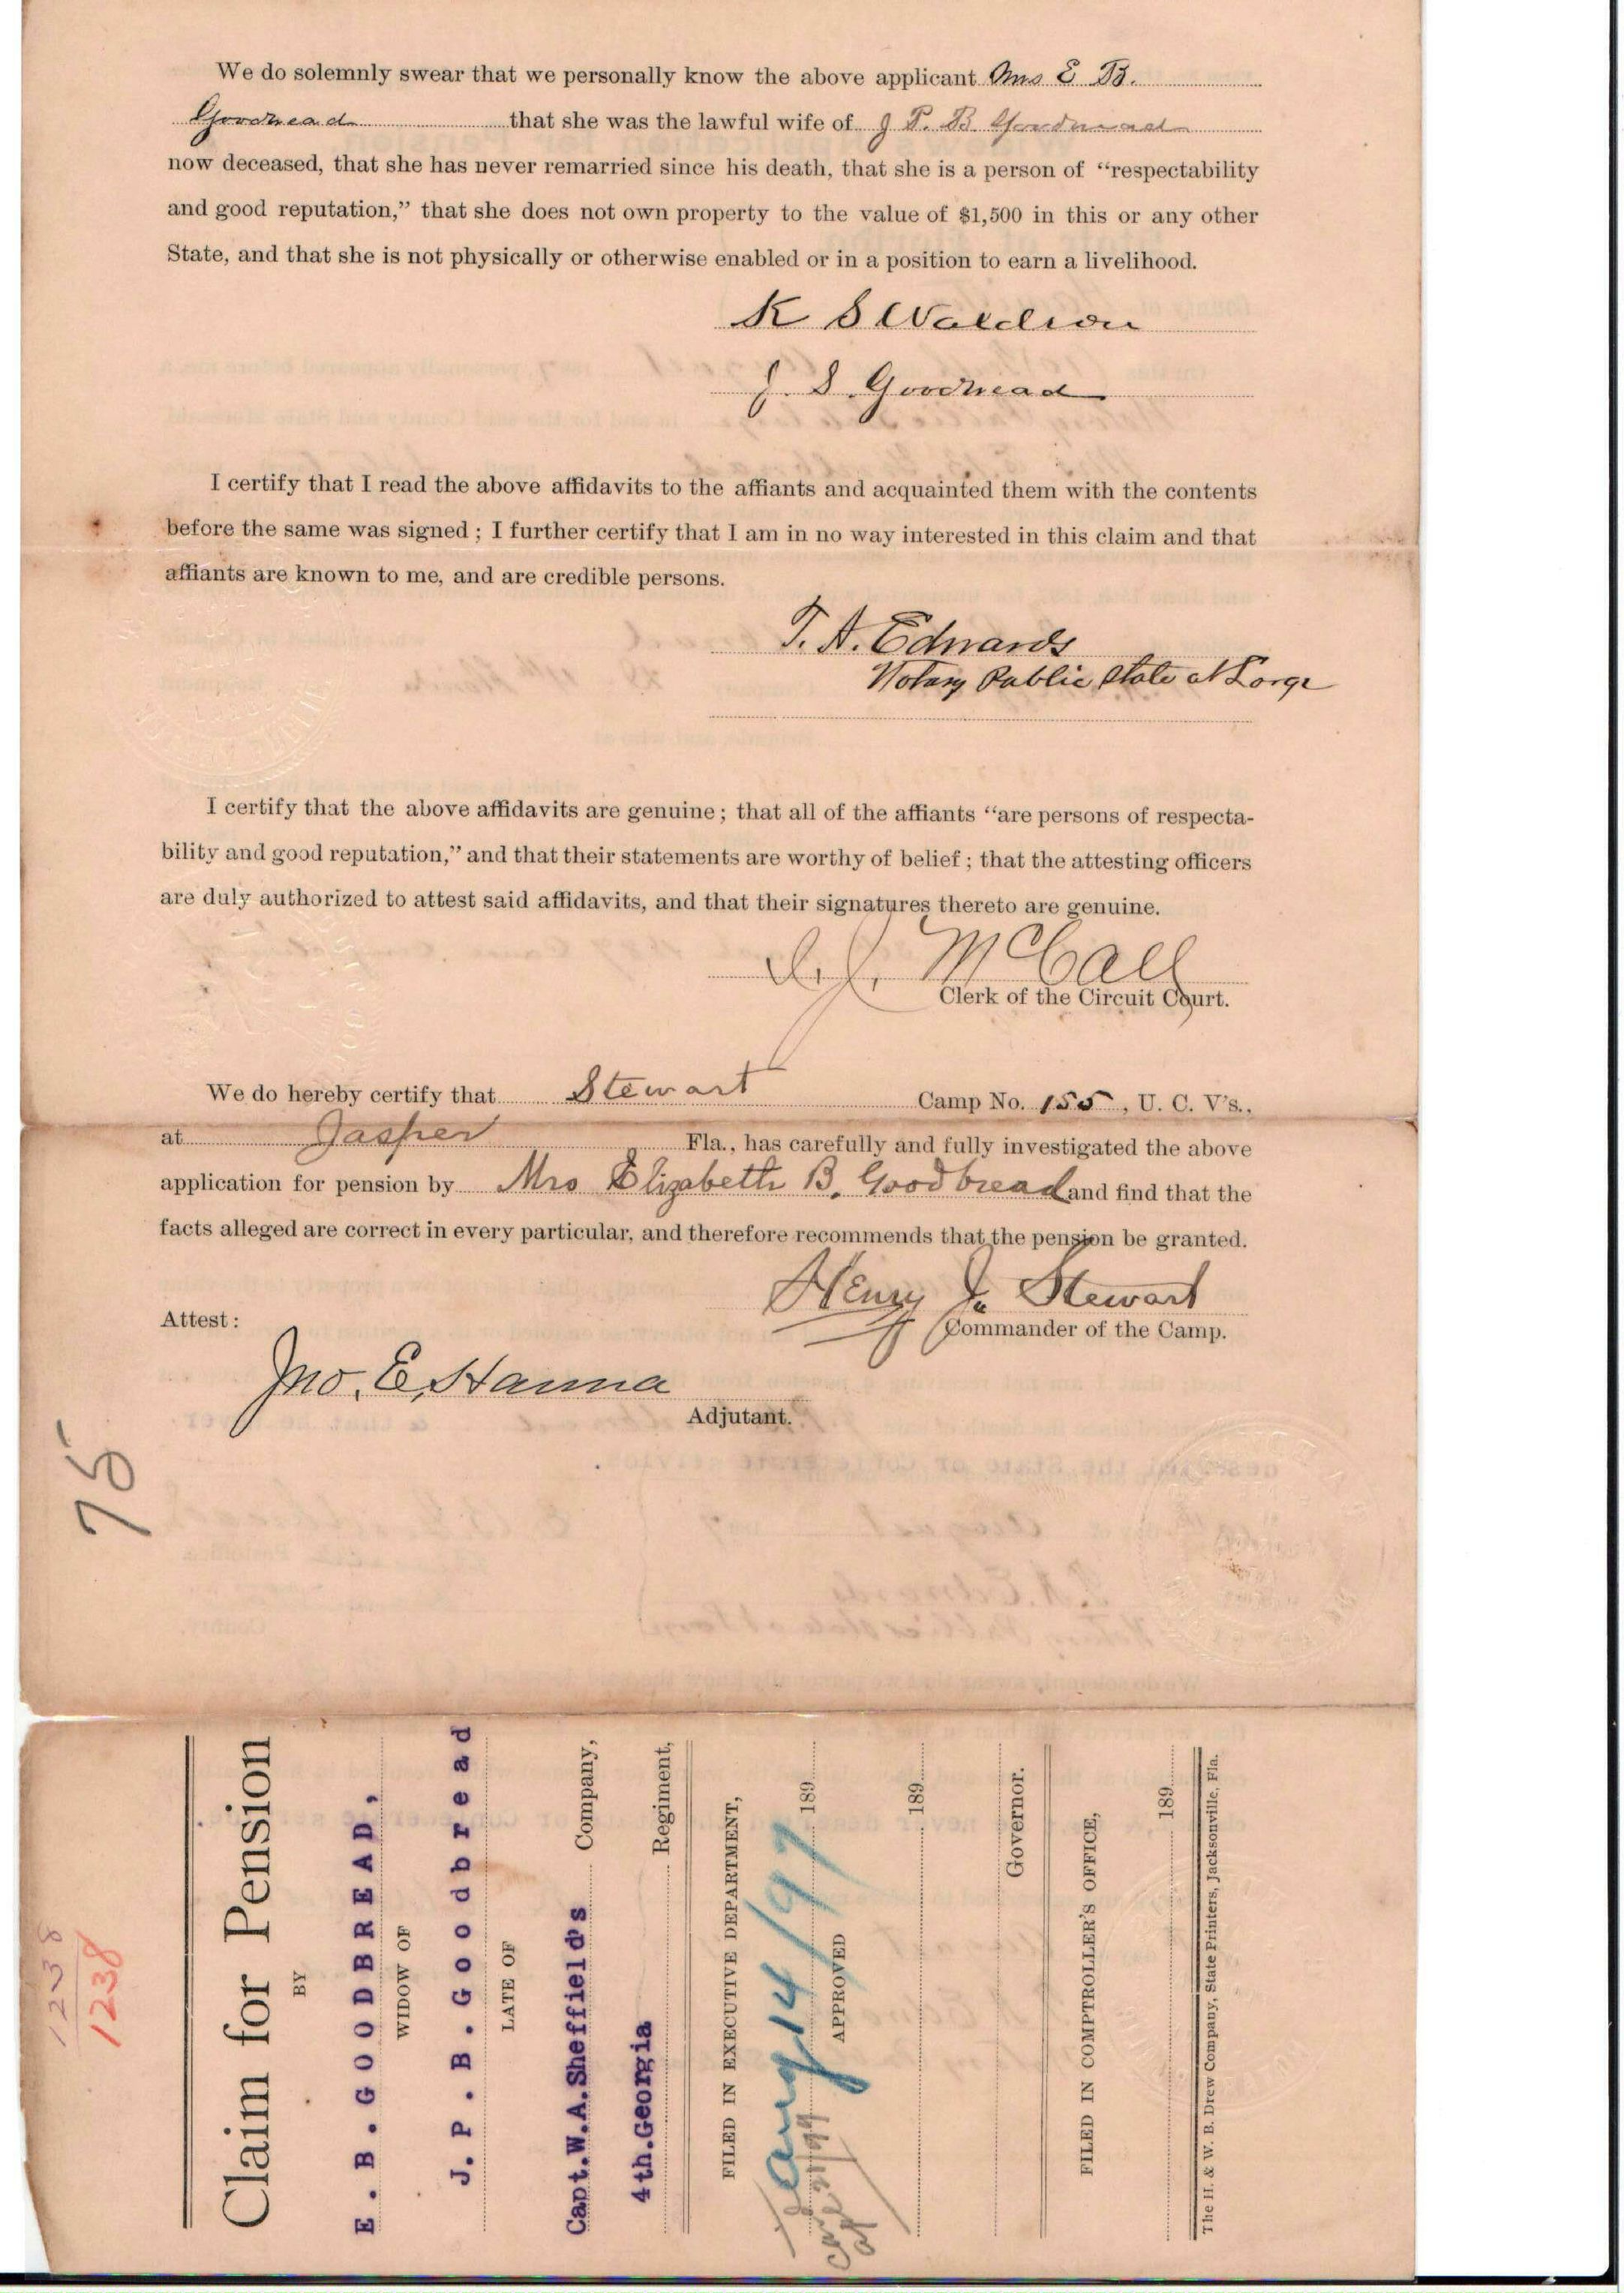 We do solemnly swear that we personally know the above applicant Mrs E B.
Goodbread that she was the lawful wife of J P. B Goodbread
now deceased, that she has never remarried since his death, that she is a person of “respectability
and good reputation,” that she does not own property to the value of $1,500 in this or any other
State, and that she is not physically or otherwise enabled or in a position to earn a livelihood.
K S Waldron
J. S. Goodbread
I certify that I read the above affidavits to the affiants and acquainted them with the contents
before the same was signed; I further certify that I am in no way interested in this claim and that
affiants are known to me, and are credible persons.
T. A. Edwards
Notary Public State at Large
I certify that the above affidavits are genuine; that all of the affiants “are persons of respecta-
bility and good reputation,” and that their statements are worthy of belief; that the attesting officers
are duly authorized to attest said affidavits, and that their signatures thereto are genuine.
McCall
Clerk of the Circuit Court.
We do hereby certify that Stewart Camp No. 155, U. C. V's.,
at Jasper Fla., has carefully and fully investigated the above
application for pension by Mrs Elizabeth B. Goodbread and find that the
facts alleged are correct in every particular, and therefore recommends that the pension be granted.
Henry J. Stewart
Commander of the Camp.
Attest:
Jno. E. Hanna
Adjutant.
75
1238
1238
Claim for Pension
BY
E. B. GOODBREAD,
WIDOW OF
J. P. B. Goodbread
LATE OF
Capt. W. A. Sheffield's Company,
4th. Georgia Regiment,
FILED IN EXECUTIVE DEPARTMENT,
Aug 14/97 189
APPROVED
189
Governor.
FILED IN COMPTROLLER'S OFFICE,
189
The H. & W. B. Drew Company, State Printers, Jacksonville, Fla.